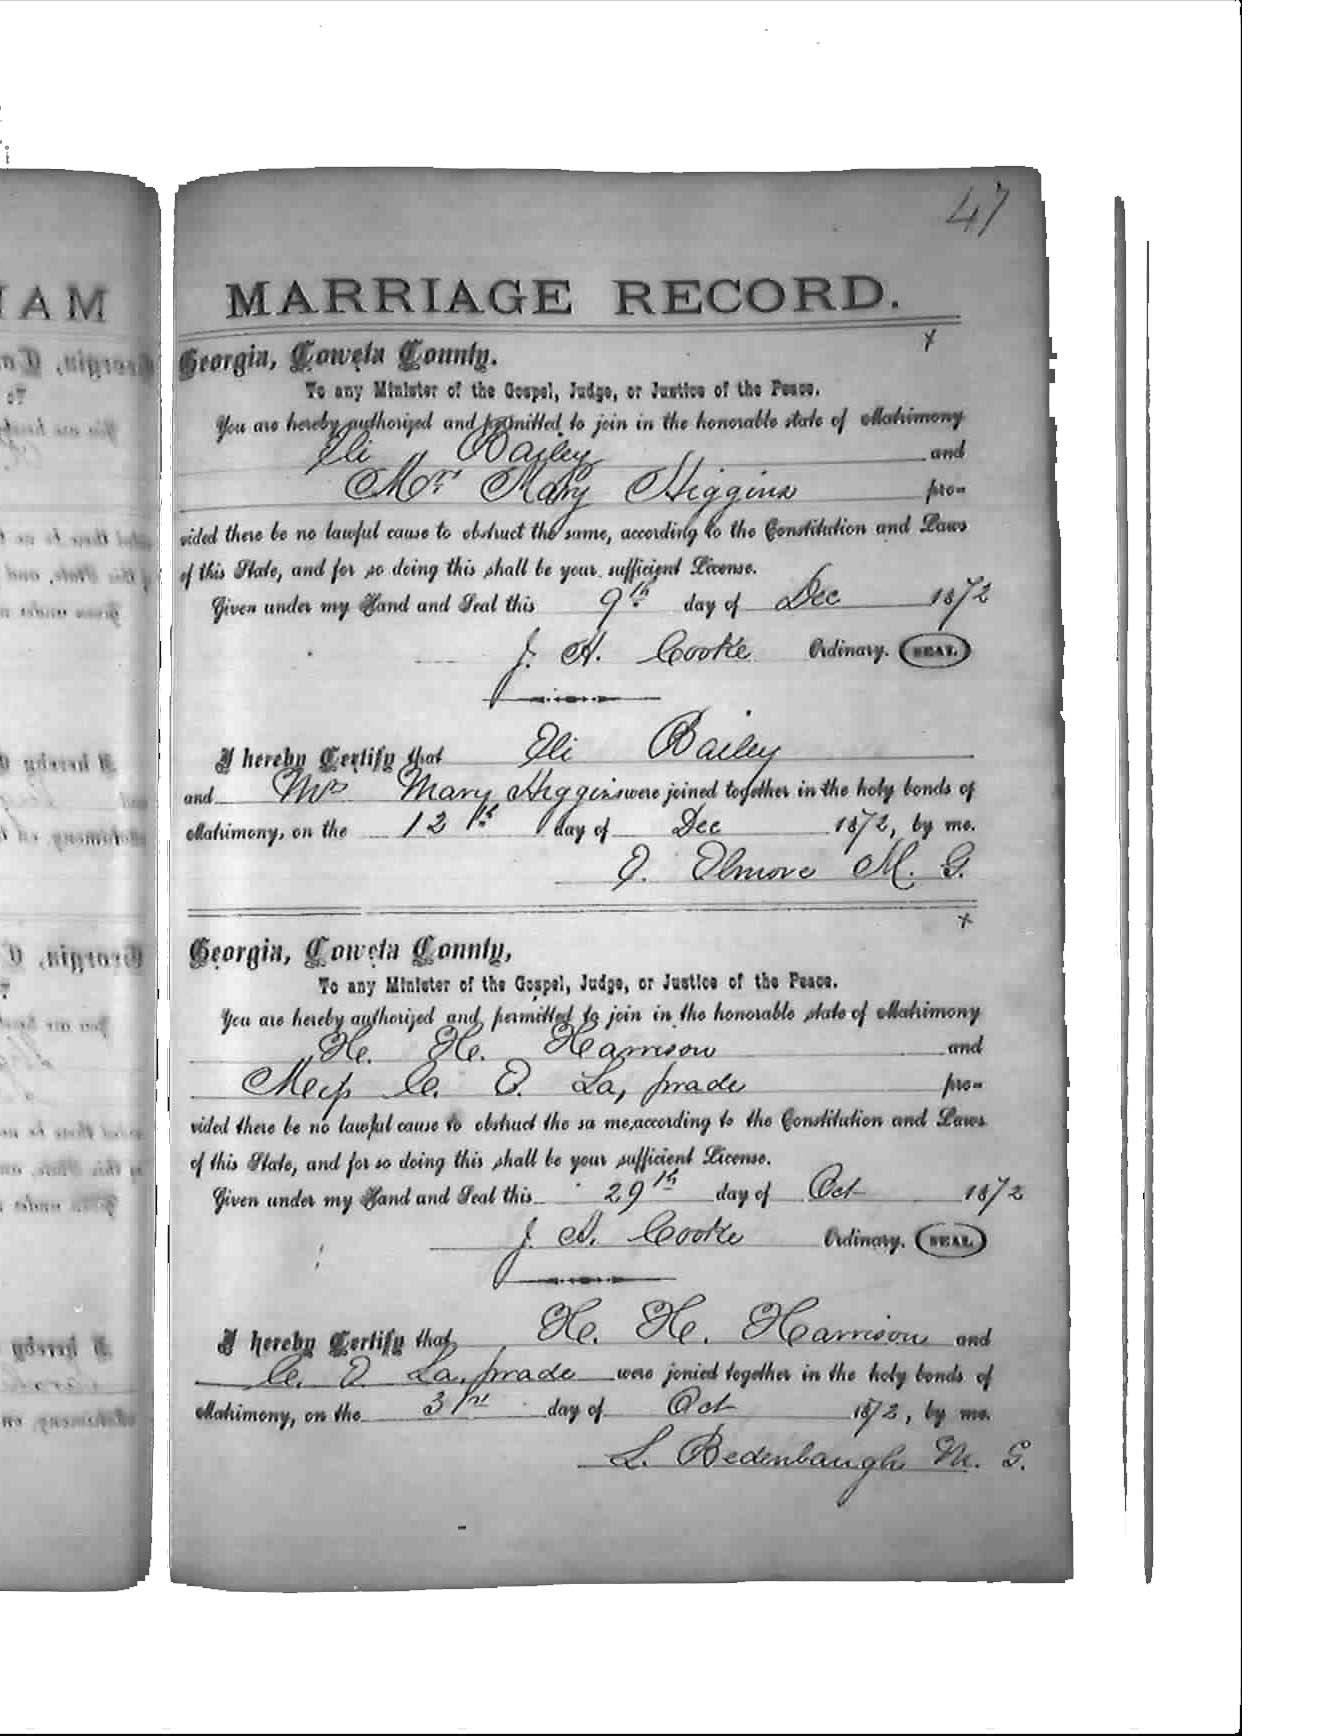 47
MARRIAGE RECORD.
x
Georgia, Coweta County.
To any Minister of the Gospel, Judge, or Justice of the Peace.
You are hereby authorized and permitted to join in the honorable state of Matrimony
Eli Bailey and
Mrs Mary Higgins pro-
vided there be no lawful cause to obstruct the same, according to the Constitution and Laws
of this State, and for so doing this shall be your sufficient License.
Given under my Hand and Seal this 9th day of Dec 1872
J. H. Cooke Ordinary. SEAL
I hereby Certify that Eli Bailey
and Mrs Mary Higgins were joined together in the holy bonds of
Matrimony, on the 12th day of Dec 1872, by me.
Elmore M. G.
x
Georgia, Coweta County,
To any Minister of the Gospel, Judge, or Justice of the Peace.
You are hereby authorized and permitted to join in the honorable state of Matrimony
H. H. Harrison and
C. La, prade pro-
vided there be no lawful cause to obstruct the sa me,according to the Constitution and Laws
of this State, and for so doing this shall be your sufficient License.
Given under my Hand and Seal this 29th day of Oct 1872
J. H. Cooke Ordinary. SEAL
I hereby Certify that H. H. Harrison and
C. La, prade were jonied together in the holy bonds of
Matrimony, on the 31st day of Oct 1872, by me.
L. Bedenbaugh M. G.